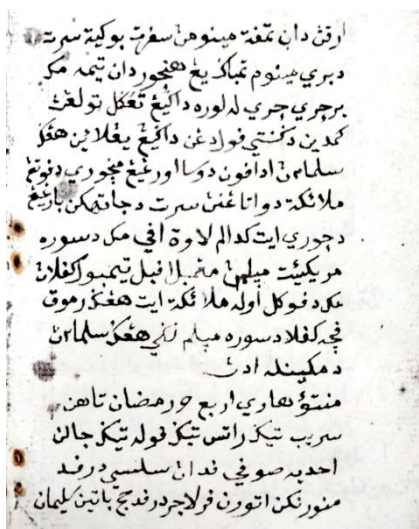 ارقن دان تمفة مينومن سفرت بوكيه سرت
دبري مينوم تمباك يڠ هنچور دان تيمه مک
برچري چري له لوره داڬيڠ تولڠڽ
كمدين دڬنتي فولا دڠن داڬيڠ يڠ لاين هڠڬ
سلماڽ اداڤون دوسا اورڠ يڠ منچوري دڤوتڠ
ملائكة دوا تاڠنڽ سرت دجاتهكن باڬيڠ
دچوري ايت كدالم لاوة افي مک دسوره
مريكئيت ميلم منڠمبيل افبيل تيمبول كڤلاڽ
مک دڤوكل اوله ملائكة ايت هڠڬ رموق
ڤچه كڤلا دسوره ميلم لاڬي هڠڬ سلماڽ
دمكينله اداڽ
هاري اربع حور رمضان تاهن
سريب تيڬ راتس تيڬ ڤوله تيڬ جالن
احديه صوفي ڤدان سلسي درڤد
منورنكن اتورن ڤلاجر درڤد حج باتين سليمان